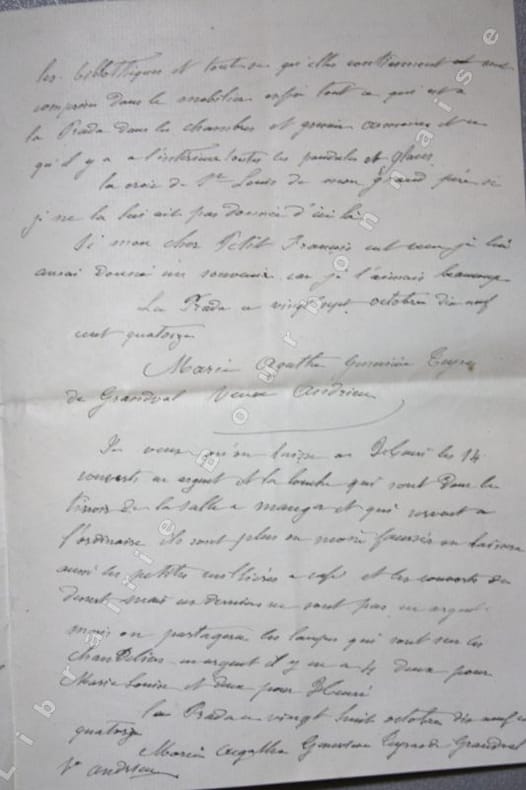 les bibliothèques et tout ce qu'elles contiennent
compris dans le mobilier enfin tout ce qui est a
la Prada dans les chambres et grenier armoires et ce
qu'il y a a l'interieur toutes les pendules et glaces
la croix de St Louis de mon grand père si
je ne la lui ait pas donnée d'ici là
Si mon cher Petit François je lui
aurai donné un souvenir car je l'aimais beaucoup
La Prada ce vingt sept octobre dix neuf
cent quatorze
Marie Agathe Genevieve Teyras
de Grandval Veuve Andrieu
Je veux qu'on laisse a Henri les 14
couverts en argent et la louche qui sont dans le
tiroir de la salle a manger et qui servent a
l'ordinaire ils sont plus ou moins faussés on laissera
aussi les petites cuillères a café et les couverts de
desert mais ces derniers ne sont pas en argent
mais on partagera les lampes qui sont sur les
chandeliers en argent il y en a 4 deux pour
Marie Louise et deux pour Henri
La Prada ce vingt huit octobre dix neuf cent
quatorze
Marie Agathe Genevieve Teyras de Grandval
Ve Andrieu
Librairie Bourbonnaise